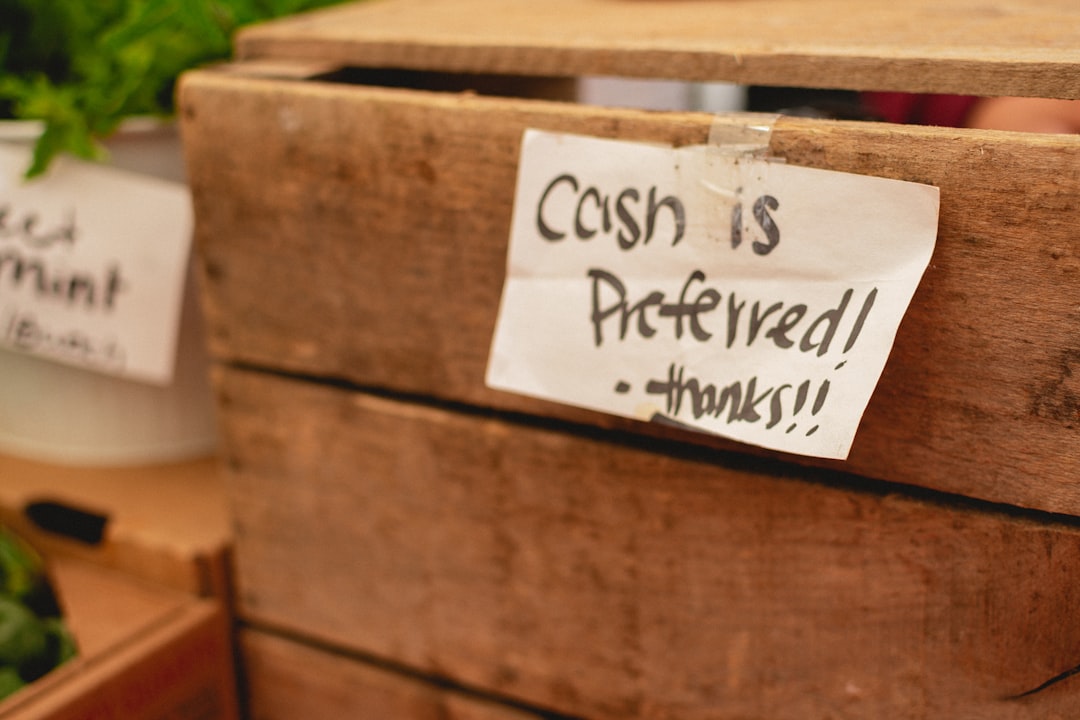 mint
Cash is
Preferred!
• thanks!!